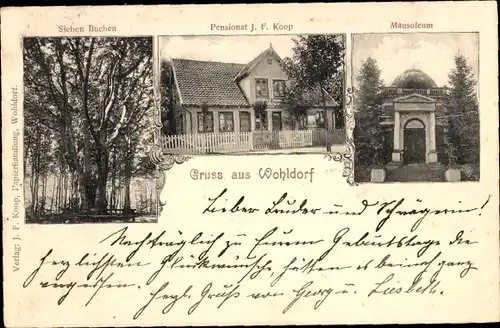 Sieben Buchen
Pensionat J. F. Koop
Mausoleum
Verlag: J. F. Koop, Papierhandlung, Wohldorf.
Gruss aus Wohldorf
Lieber Bruder und Schwägerin!
Nachträglich zu Eurem Geburtstage die
herzlichsten Glückwünsche, hätten es beinah ganz
vergessen. Herzl. Gruß von Georg u. Liesbeth.